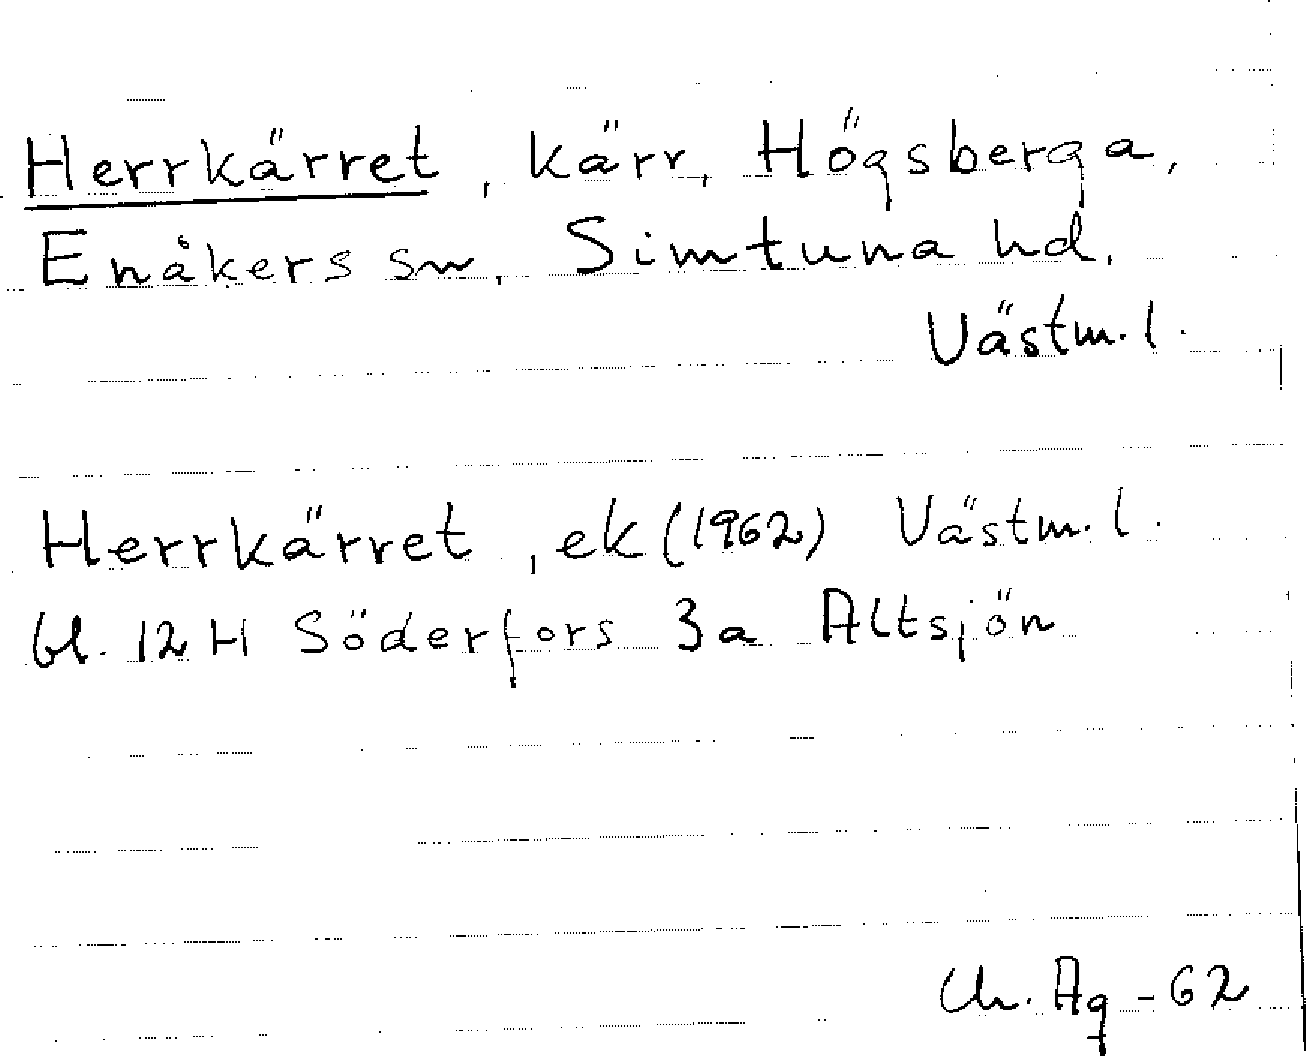 Herrkärret, kärr, Högsberga,
Enåkers sn, Simtuna hd,
Västm. l.
Herrkärret, ek (1962) Västm. l.
bl. 12H Söderfors 3a Altsjön
Ch. Ag -62